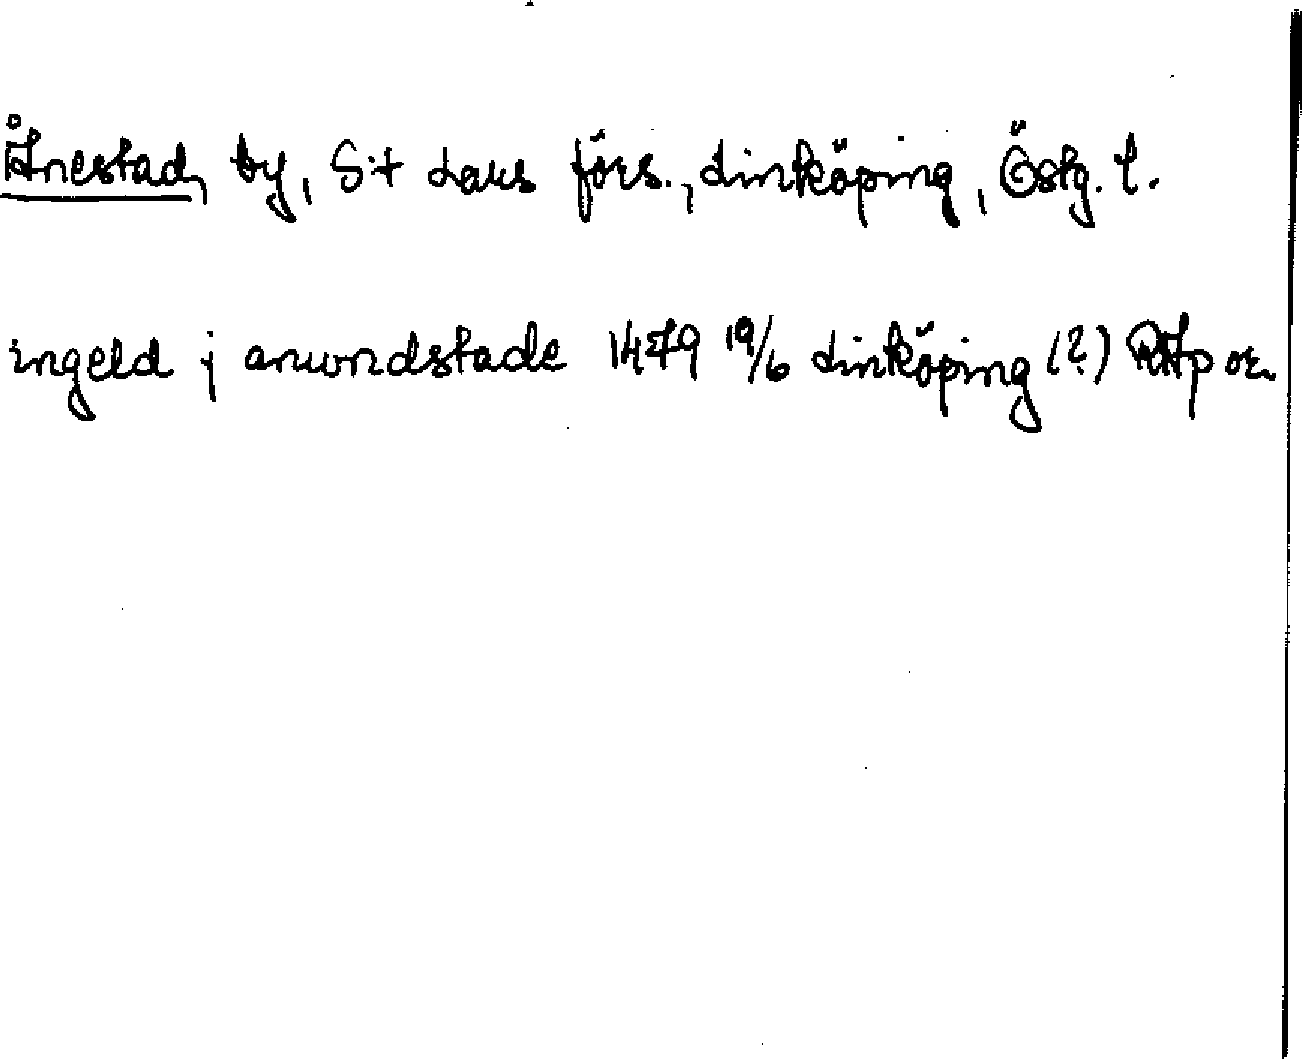 Ånestad, by, S:t Lars förs., Linköping, Östg. l.
ingeld j anwndstade 1479 19/6 Linköping (?) RAp or.